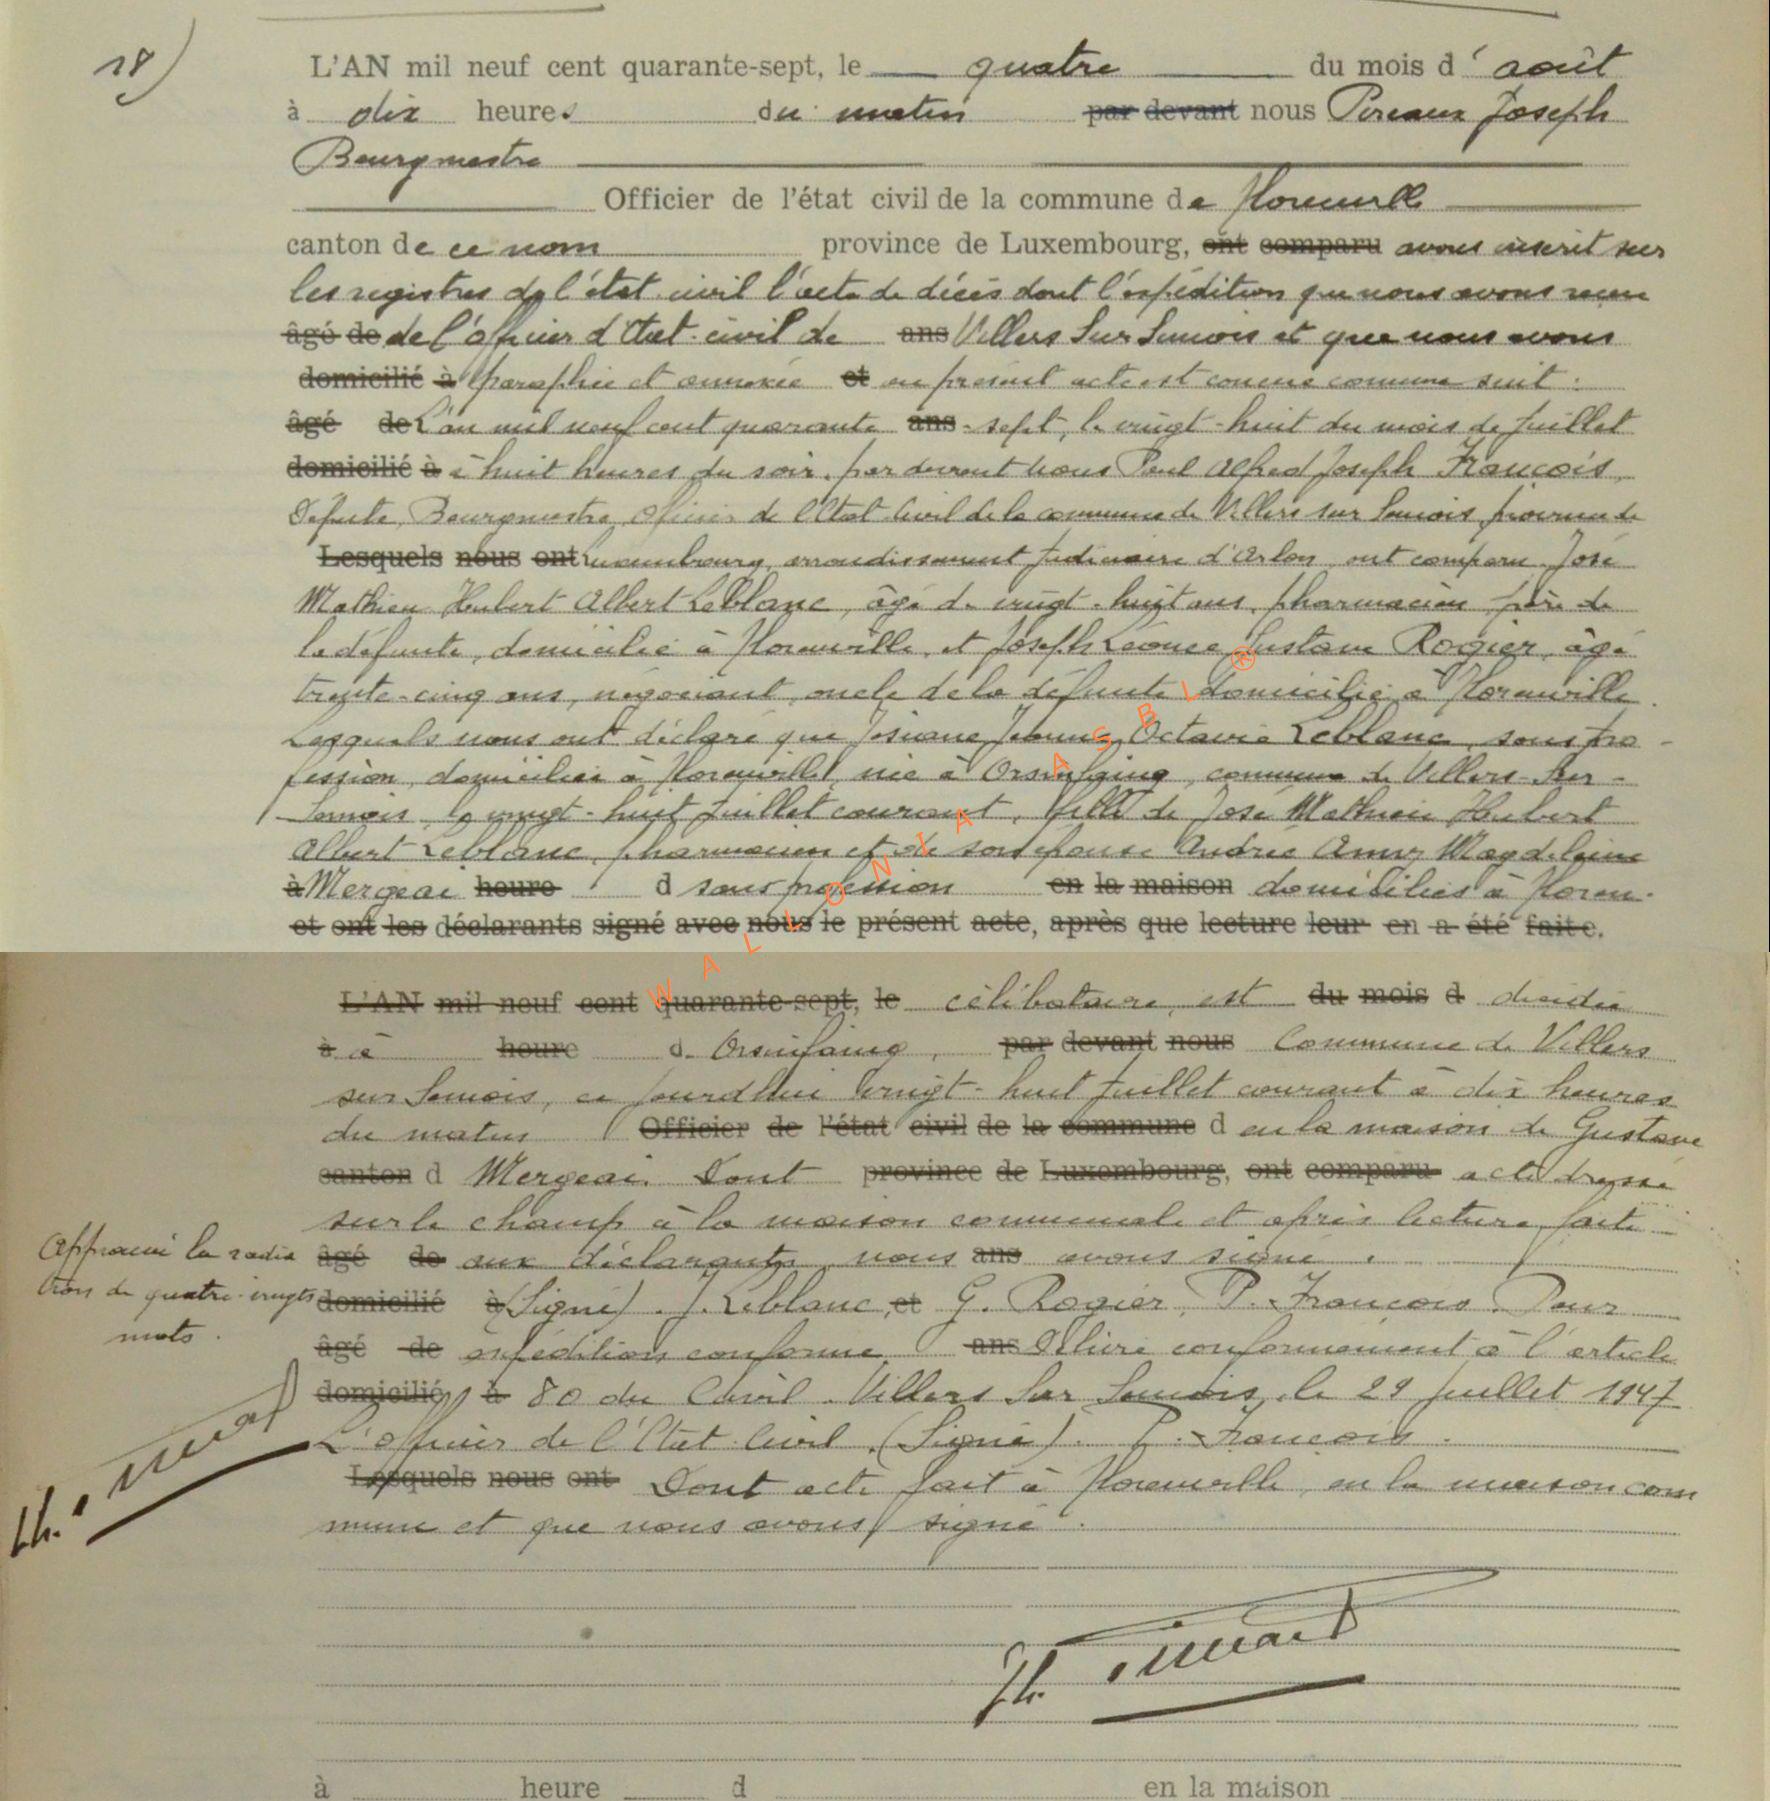 18)
L'AN mil neuf cent quarante-sept, le quatre du mois d' août
à dix heures du matin par devant nous Pireaux Joseph
Bourgmestre
Officier de l'état civil de la commune de Florenville
canton de ce nom province de Luxembourg, ont comparu avons inscrit sur
les registres de l'état civil l'acte de décès dont l'expédition que nous avons reçue
âgé de de l'officier d'Etat-civil de ans Villers sur Semois et que nous avons
domicilié à paraphée et annexée et au présent acte est conçue comme suit :
âgé de L'an mil neuf cent quarante ans - sept, le vingt-huit du mois de juillet
domicilié à à huit heures du soir, par devant nous Paul Alfred Joseph François,
Député, Bourgmestre, officier de l'Etat Civil de la commune de Villers sur Semois, province de
Lesquels nous ont Luxembourg, arrondissement judiciaire d'Arlon, ont comparu José
Mathieu Hubert Albert Leblanc, âgé de vingt-huit ans, pharmacien père de
la défunte, domicilié à Florenville, et Joseph Léonce Gustave Rogier, âgé
trente-cinq ans, négociant, oncle de la défunte domicilié à Florenville.
Lesquels nous ont déclaré que Josiane Jeanne Octavie Leblanc, sans pro-
fession, domiciliée à Florenville, née à Orsinfaing, commune de Villers-Sur-
Semois, le vingt-huit juillet courant, fille de José Mathieu Hubert
Albert Leblanc, pharmacien et de son épouse Andrée Anny Magdeleine
à Mergeai heure d sans profession en la maison domiciliés à Floren-
et ont les déclarants signé avec nous le présent acte, après que lecture leur en a été faite.
WALLONIA ASBL ®
L'AN mil neuf cent quarante-sept, le célibataire, est du mois d décédée
à à heure d. Orsinfaing, par devant nous Commune de Villers
sur Semois, ce jourd'hui vingt-huit juillet courant à dix heures
du matin Officier de l'état civil de la commune d en la maison de Gustave
canton d Mergeai. Dont province de Luxembourg, ont comparu acte dressé
sur le champ à la maison communale et après lecture faite
âgé de aux déclarants, nous ans avons signé.
Approuvé la radia
tion de quatre-vingts
mots.
domicilié à (Signé). J. Leblanc, et G. Rogier, P. François. Pour
âgé de expédition conforme, ans Délivré conformément à l'article
domicilié à 80 du C.civil. Villers Sur Semois, le 29 juillet 1947
L'officier de l'Etat-Civil. (Signé). P. François.
Lesquels nous ont Dont acte fait à Florenville, en la maison com
mune et que nous avons signé.
à heure d en la maison